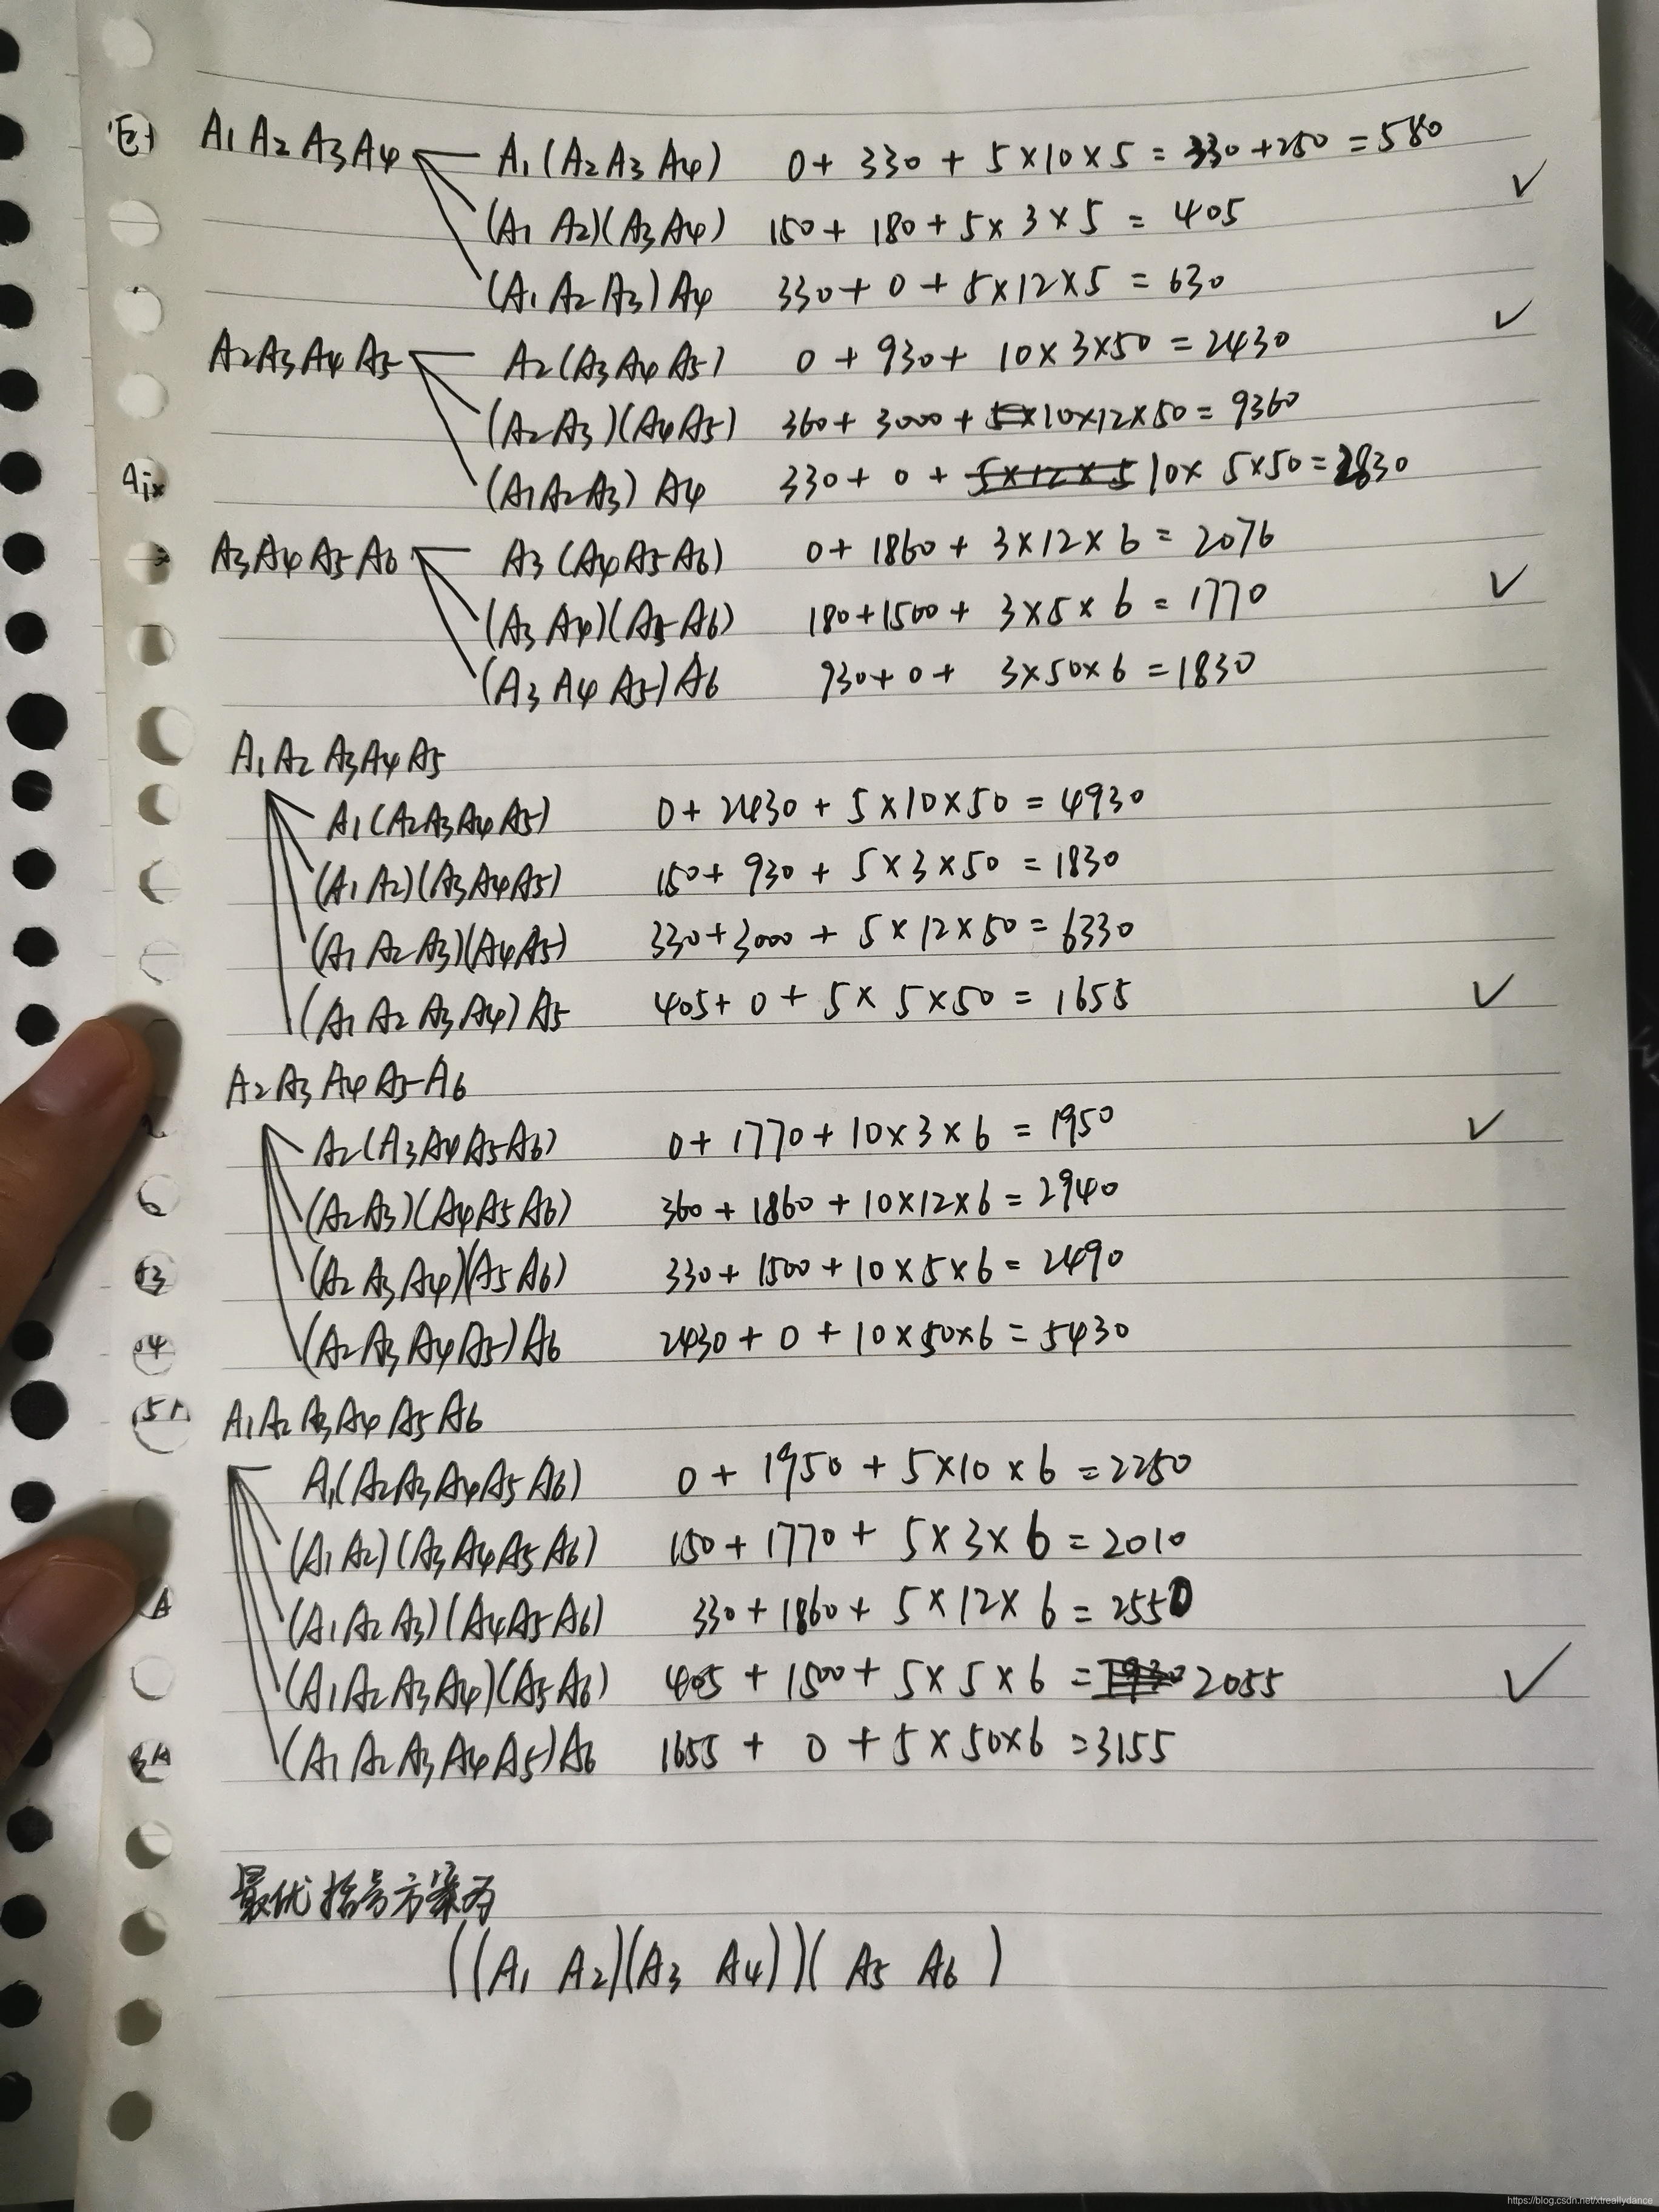 A1 A2 A3 A4 A1(A2 A3 A4) 0+ 330 + 5×10×5 = 330+250 = 580
(A1 A2)(A3A4) 150+ 180+5×3×5 = 405 ✓
(A1 A2 A3) A4 330+ 0 + 5×12×5 = 630
A2A3 A4 A5 A2(A3 A4 A5) 0 + 930+ 10×3×50 = 2430 ✓
(A2A3)(A4A5) 360+ 3000 + 10×12×50 = 9360
(A1A2A3) A4 330+ 0 + 5×12×5 10× 5×50=2830
A3A4 A5 A6 A3 (A4A5A6) 0+ 1860 + 3×12×6 = 2076
(A3 A4)(A5 A6) 180+1500 + 3×5×6 = 1770 ✓
(A3 A4 A5)A6 930+ 0 + 3×50×6 =1830
A1 A2 A3A4 A5
A1(A2A3A4 A5) 0+ 2430 + 5×10×50 = 4930
(A1 A2)(A3A4A5) 150+ 930 + 5×3×50 = 1830
(A1 A2 A3)(A4A5) 330+3000 + 5×12×50=6330
(A1 A2 A3 A4) A5 405+ 0 + 5×5×50 = 1655 ✓
A2 A3 A4 A5 A6
A2(A3A4A5A6) 0+ 1770+10×3×6 = 1950 ✓
(A2A3)(A4A5A6) 360 + 1860 +10×12×6=2940
(A2 A3 A4)(A5 A6) 330+ 1500 +10×5×6= 2490
(A2A3A4A5)A6 2430 + 0 +10×50×6=5430
A1A2 A3A4 A5 A6
A1(A2A3A4A5 A6) 0 + 1950 +5×10×6 =2250
(A1 A2)(A3A4A5A6) 150+1770+ 5×3×6 =2010
(A1 A2 A3)(A4A5A6) 330+1860+ 5×12×6 =2550
(A1A2A3A4)(A5A6) 405 + 1500+ 5×5×6 = 2055 ✓
(A1 A2 A3 A4 A5)A6 1655 + 0 +5×50×6 =3155
最优括号方案为
((A1 A2)(A3 A4))( A5 A6 )
https://blog.csdn.net/xtreallydance